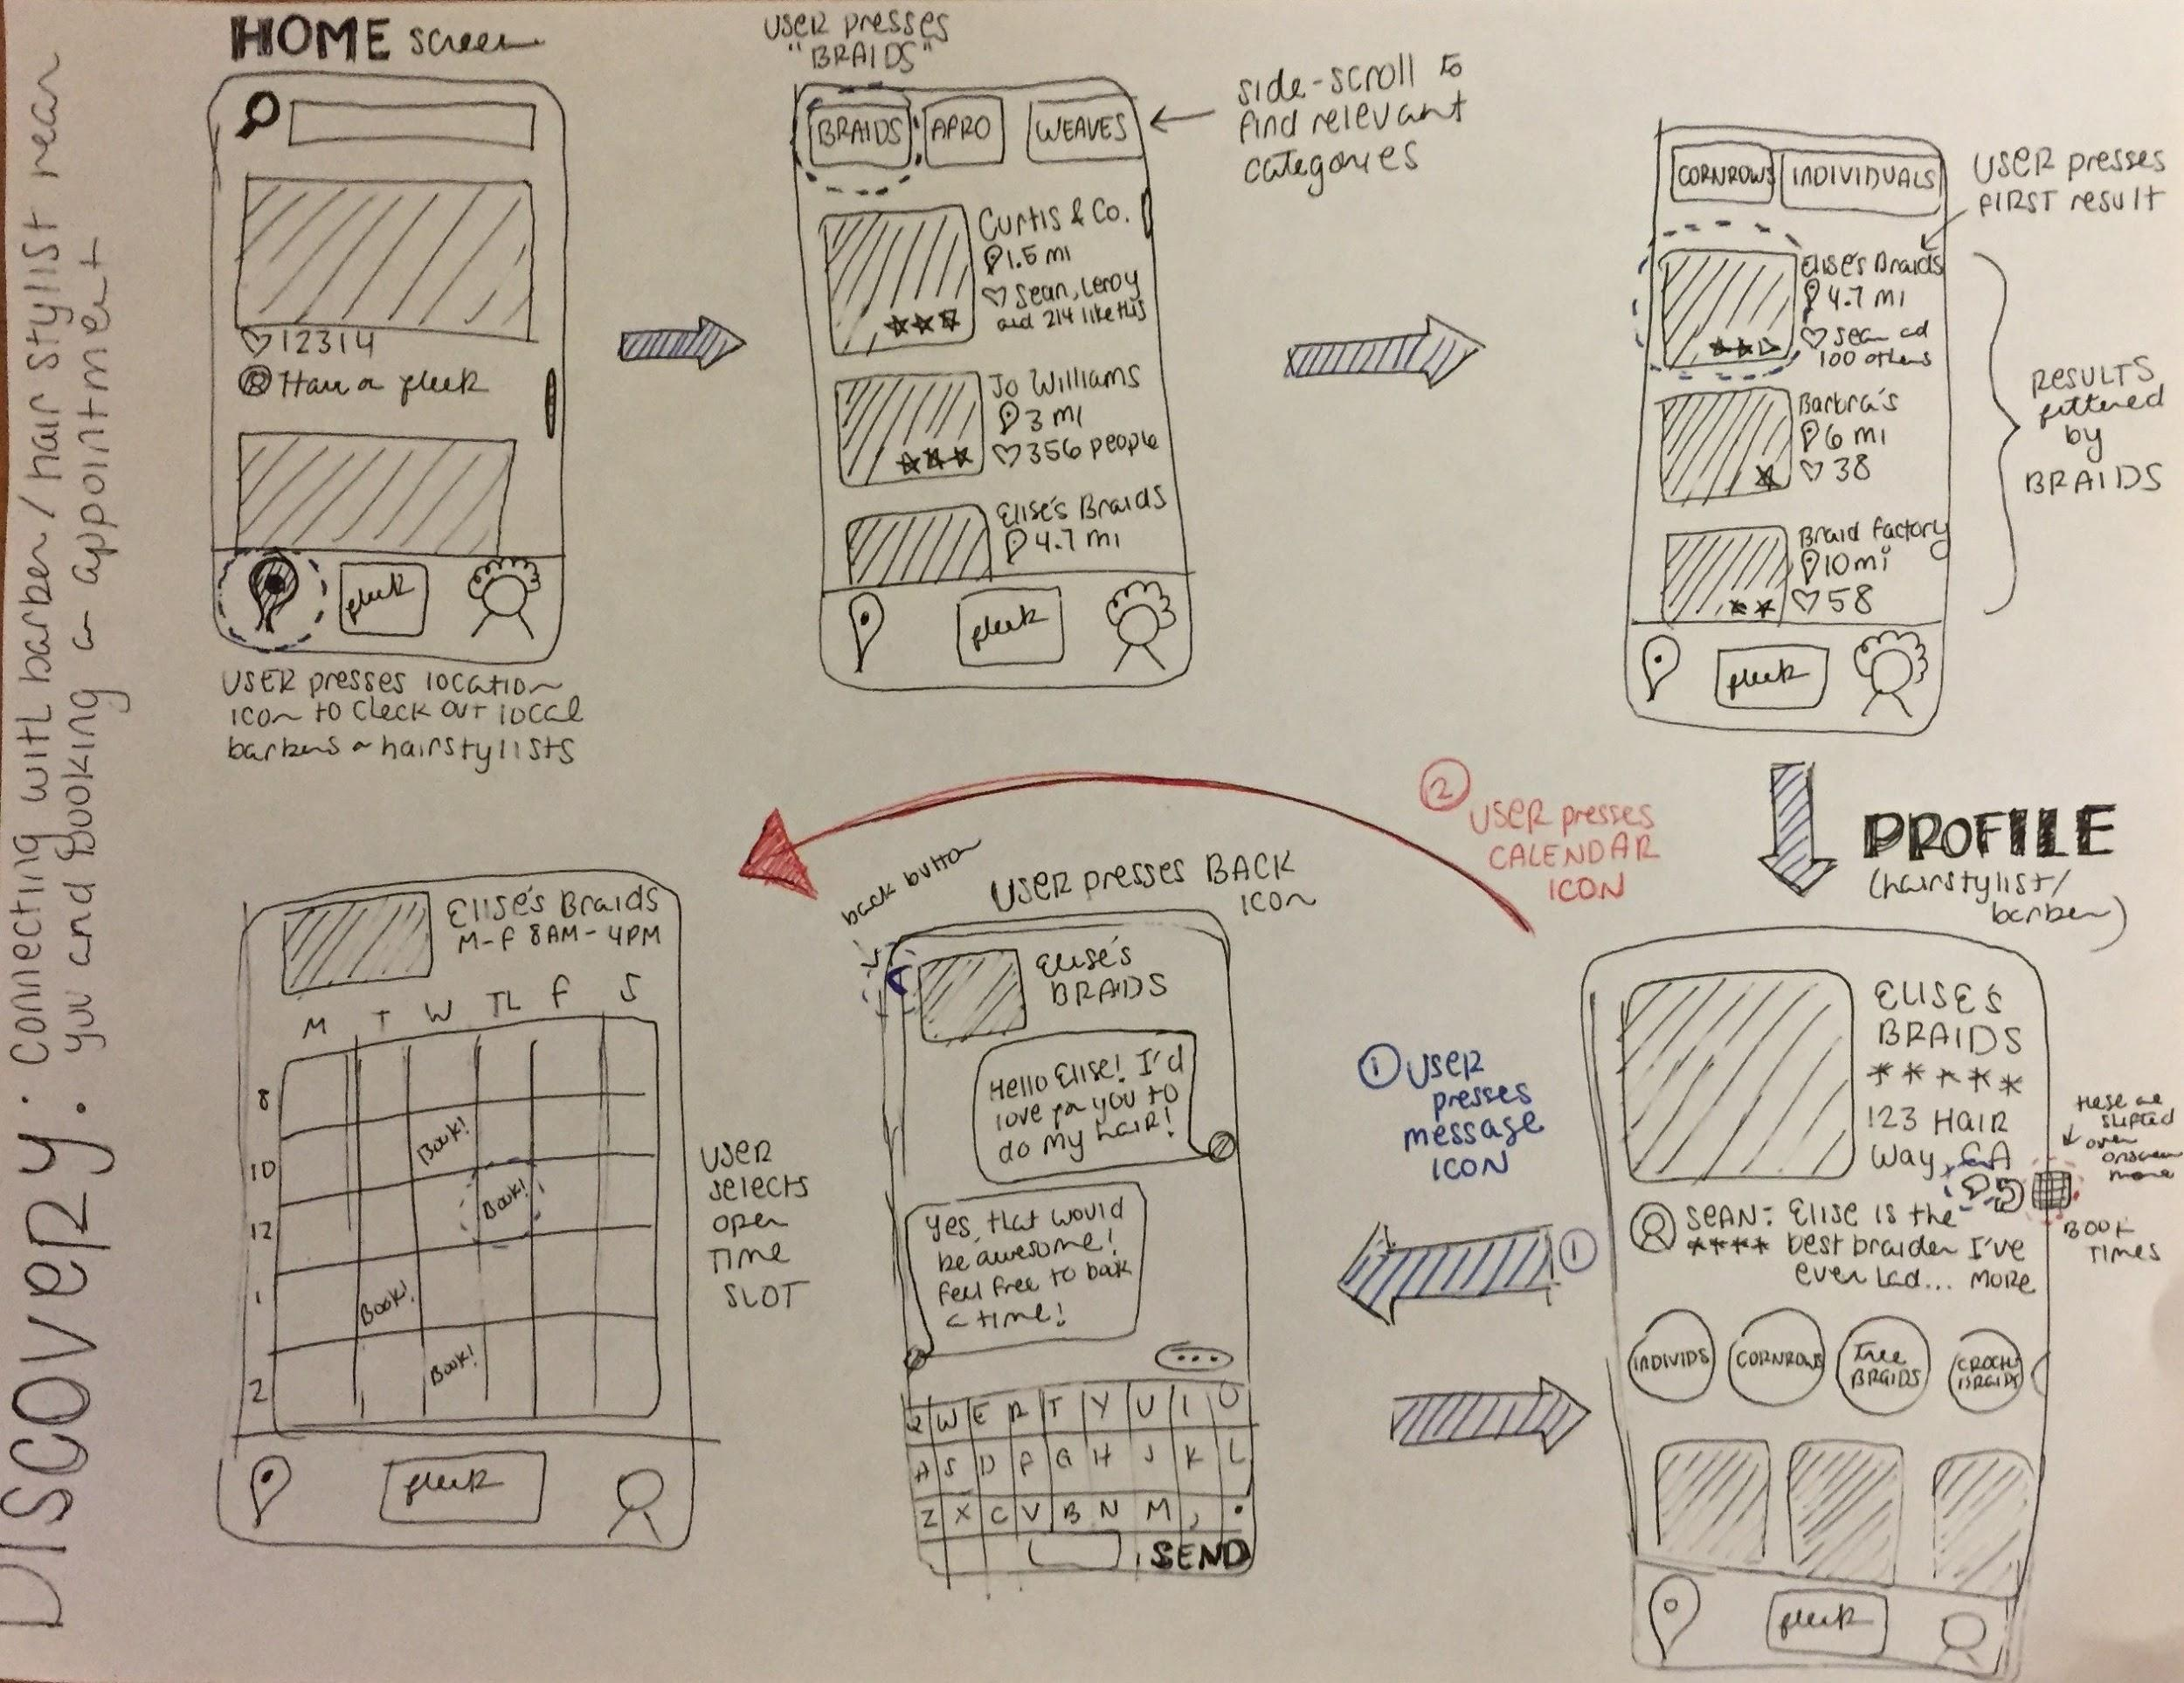 DISCOVERY: Connecting with barber/hair stylist near
you and Booking an appointment
HOME screen
♡12314
USER presses location
icon to check out local
barbers ~ hairstylists
USER presses
"BRAIDS"
BRAIDS
AFRO
WEAVES
side-scroll to
find relevant
categories
Curtis & Co.
1.5 mi
♡ Sean, Leroy
and 214 like this
Jo Williams
3 mi
♡356 people
Elise's Braids
4.7 mi
CORNROWS
INDIVIDUALS
USER presses
FIRST result
Elise's Braids
4.7 mi
♡ Sean and
100 others
Barbra's
6 mi
♡ 38
Braid factory
10 mi
♡58
RESULTS
filtered
by
BRAIDS
PROFILE
(hairstylist/
barber)
ELISE'S
BRAIDS
*****
123 HAIR
Way, CA
SEAN: Elise is the
**** best braider I've
ever had... MORE
these are
shifted
over
onscreen
more
BOOK
TIMES
INDIVIDS
CORNROWS
Tree
BRAIDS
CROCH
BRAIDS
① USER
presses
message
ICON
①
② USER presses
CALENDAR
ICON
back button
USER presses BACK
icon
Elise's
BRAIDS
Hello Elise! I'd
love for you to
do my hair!
Yes, that would
be awesome!
feel free to book
a time!
...
Q W E R T Y U I O
A S D F G H J K L
Z X C V B N M , .
SEND
Elise's Braids
M-F 8AM-4PM
M T W TH F S
8
10
12
1
2
Book!
Book!
Book!
Book!
USER
selects
open
TIME
SLOT